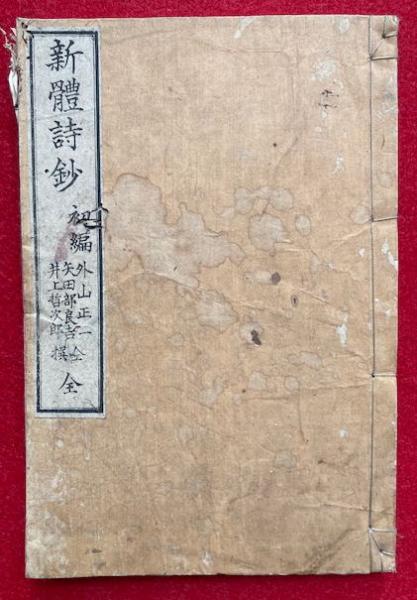 新體詩鈔
初編
外山正一
矢田部良吉
井上哲次郎
仝撰
全